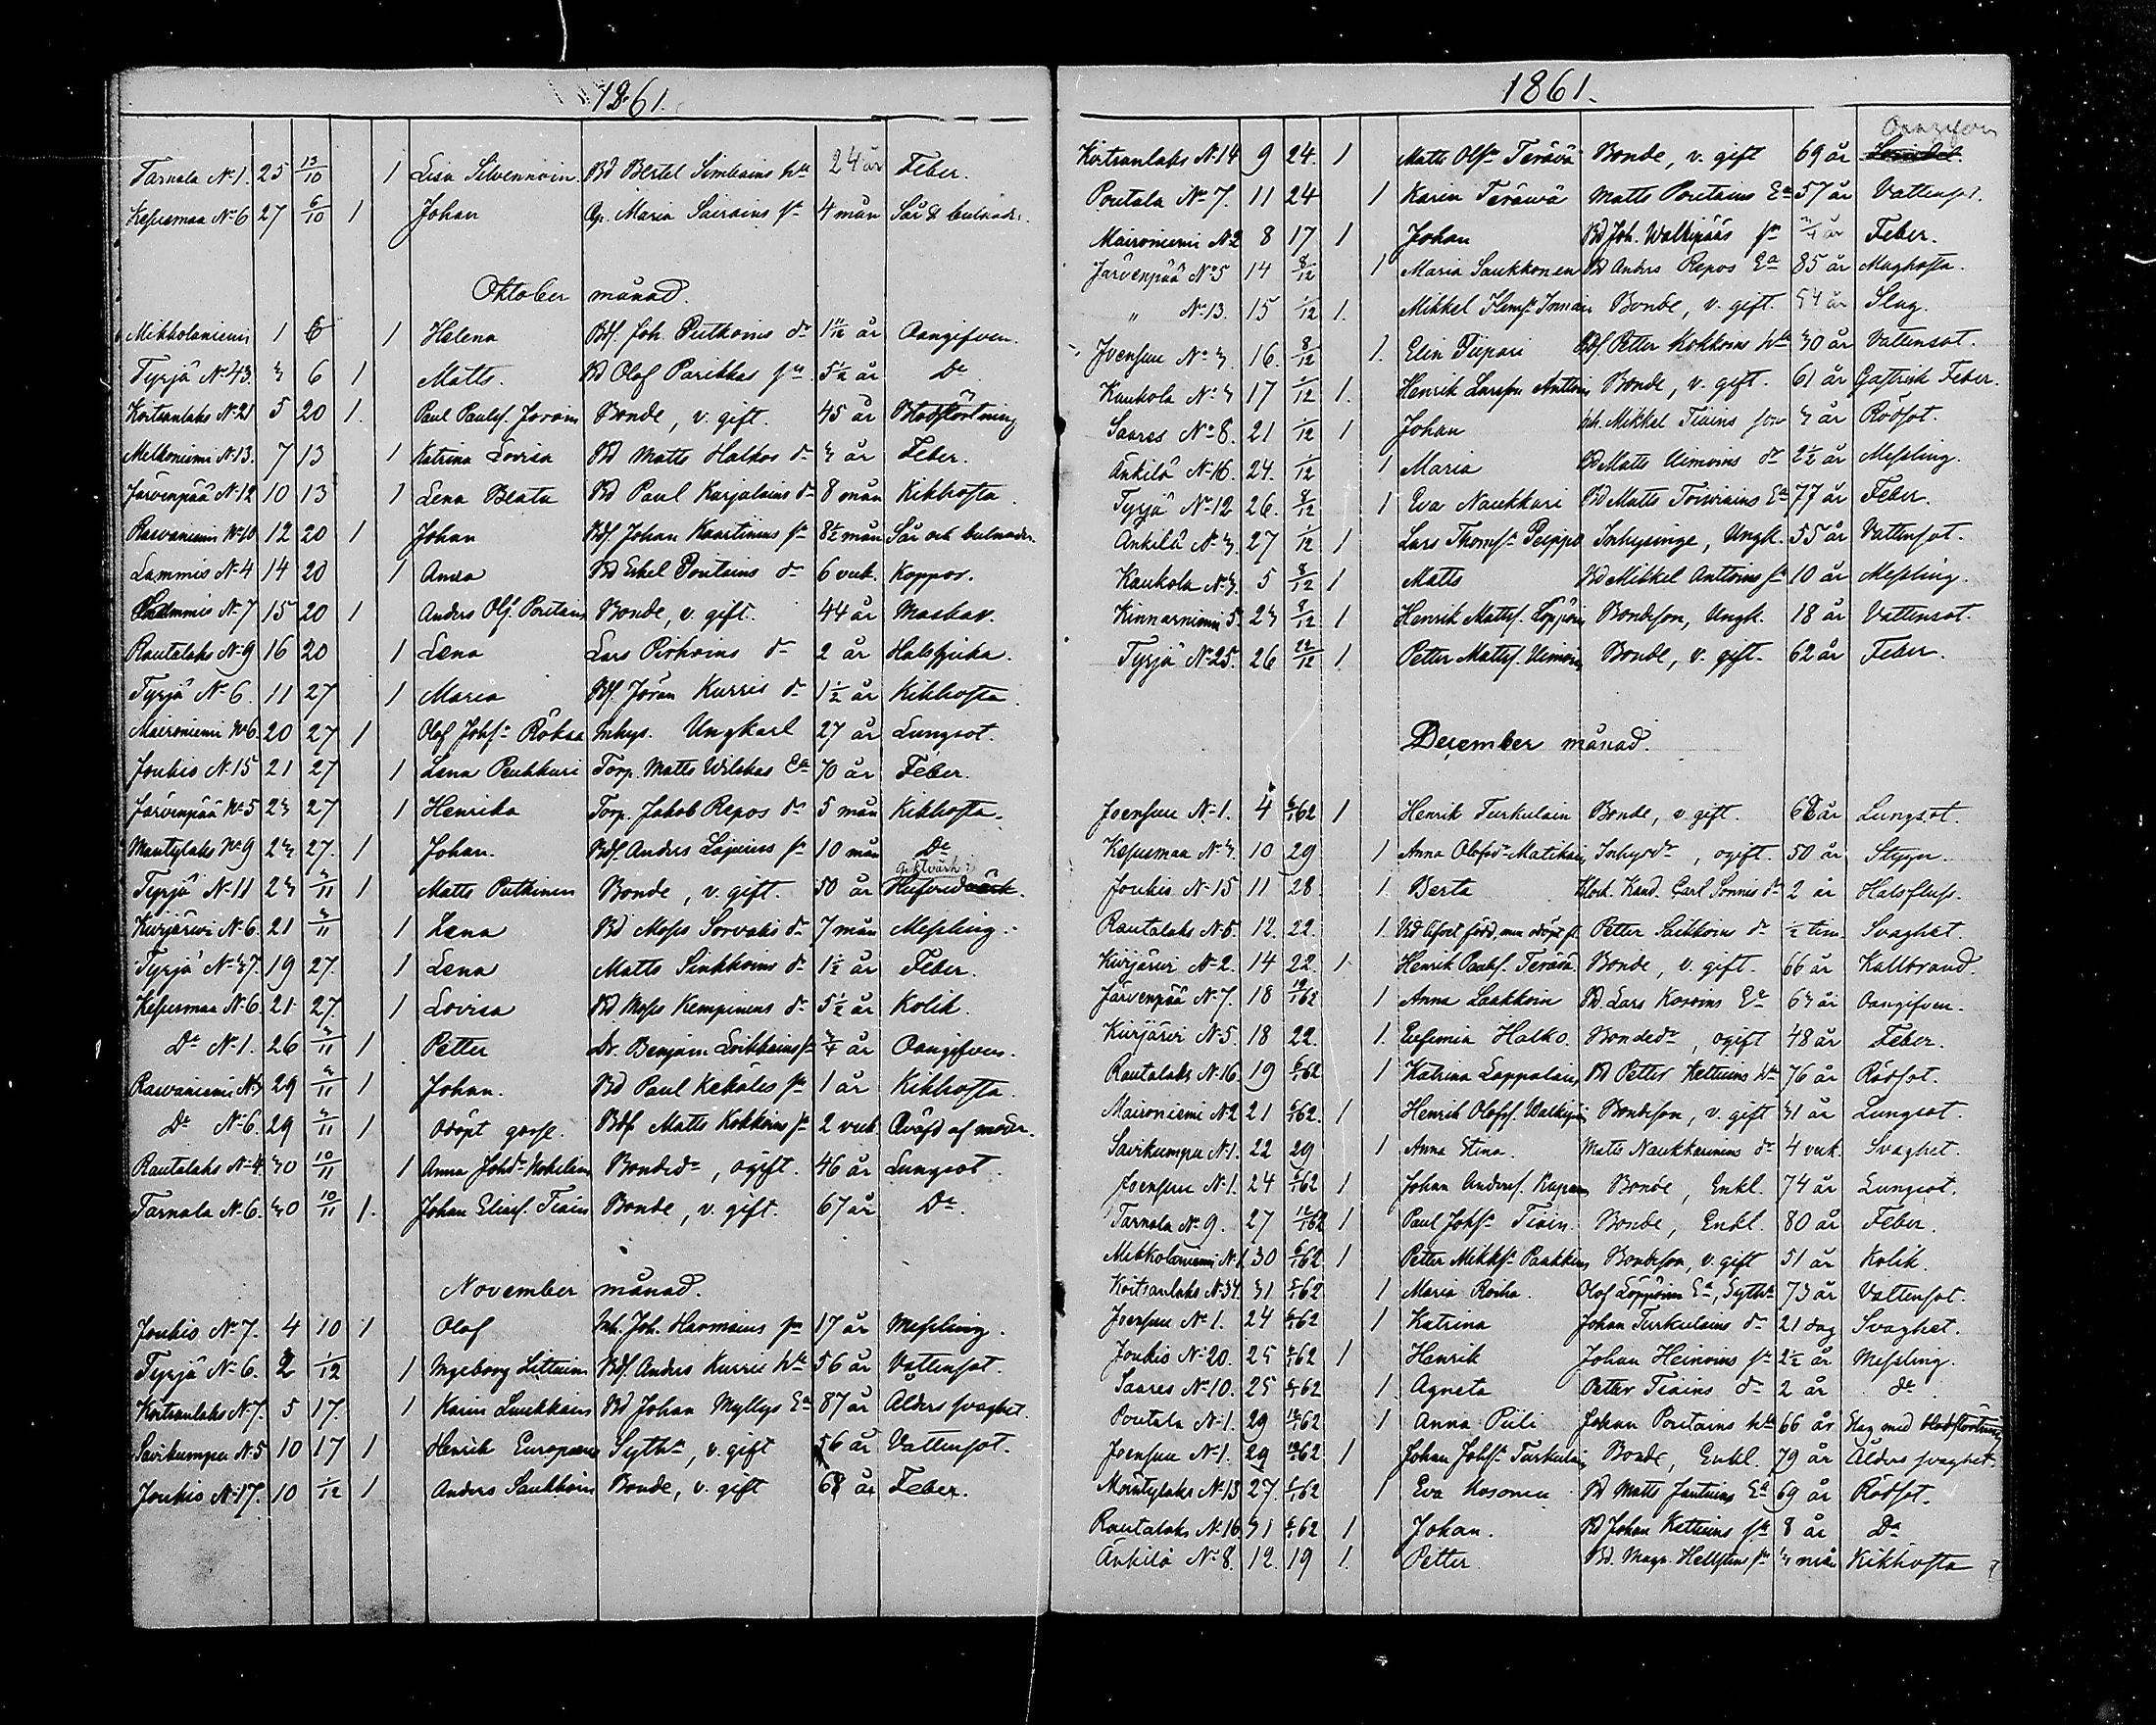 1861.
Tarnala No 1. 25 13/10 1 Lisa Silvennoin. Bd Bertel Simkains h:u 24 år Feber.
Kesusmaa No 6 27 6/10 1 Johan Maria Sairains sn 4 mån Sår & bulnader.
Oktober månad.
Mikkolaniemi 1 6 1 Helena Bdf. Joh. Putkoins dr 1 11/12 år Oangifven.
Tyrjä No 43. 3 6 1 Matts. Bd Olof Parikkas sn 5 1/2 år Do
Koitsanlaks No 21 5 20 1. Paul Paulss. Bonde, v. gift. 45 år Blodstörtning
Melkoniemi No 13. 7 13 1 Katrina Lovisa Bd Matts Halkos dr 3 år Feber.
Järvenpää No 12 10 13 1 Lena Beata Bd Paul Karjalains dr 8 mån Kikhosta.
Rasvaniemi No 10 12 20 1 Johan Bdf. Johan Kaartinens sn 8 1/2 mån Sår och bulnader.
Lammis No 4 14 20 1 Anna Bd Eskel Poutains dr 6 vek. Koppor.
Lammis No 7 15 20 1 Anders Olss. Poutain Bonde, v. gift. 44 år Maskar.
Rautalaks No 9 16 20 1 Lena Lars Pirhoins dr 2 år Halssjuka.
Tyrjä No 6. 11 27 1 Maria Bdf. Jöran Kurris dr 1 1/2 år Kikhosta.
Maironiemi No 6. 20 27 1 Olof Johss. Röksa Inhys. Ungkarl 27 år Lungsot.
Joukio No 15 21 27 1 Lena Peukkuri Torp. Matts Wilskas Ea 70 år Feber.
Järvenpää No 5 23 27 1 Henrika Torp. Jakob Repos dr 5 mån Kikhosta.
Mäntylaks No 9 23 27. 1 Johan. Bdf. Anders sn 10 mån Do
Giktvärk
Tyrjä No 11 23 3/11 1 Matts Putkinen Bonde, v. gift. 50 år Hufvudvärk.
Kirjavi No 6. 21 3/11 1 Lena Bd Moses Sorvalis dr 7 mån Messling.
Tyrjä No 37. 19 27. 1 Lena Matts Sinkkoins dr 1 1/2 år Feber.
Kesusmaa No 6. 21 27. 1 Lovisa Bd Moses Kempinens dr 5 1/2 år Kolik.
Do No 1. 26 3/11 1 Petter Dr. Benjam. Loikkains sn 3/4 år Oangifven.
Rasvaniemi No 3 29 3/11 1 Johan. Bd Paul Kekäles sn 1 år Kikhosta.
Do No 6. 29 3/11 1 odöpt gosse. Bdf Matts Kokkoins sn 2 vek. Qväfd af moder.
Rautalaks No 4. 30 10/11 1 Anna Johdr Bondedr, ogift. 46 år Lungsot.
Tarnala No 6. 30 10/11 1. Johan Eliass. Tiain Bonde, v. gift. 67 år Do.
November månad.
Joukio No 7. 4 10 1 Olof Inh. Joh. Harmains sn 17 år Messling.
Tyrjä No 6. 2 1/12 1 Ingeborg Bdf. Anders Kurris hu 56 år Vattensot.
Koitsanlaks No 7. 5 17. 1 Karin Luukkain Bd Johan Myllys Ea 87 år Ålders svaghet.
Savikumpu No 5 10 17 1 Henrik Europaeus Sytn, v. gift 56 år Vattensot.
Joukio No 17. 10 1/12 1 Anders Saukkoin Bonde, v. gift 68 år Feber.
1861.
Oangifven
Koitsanlaks No 14 9 24. 1 Matts Olss. Teräwä Bonde, v. gift 69 år
Poutala No 7. 11 24 1 Karin Teräwä Matts Poutains Ea 57 år Vattensot.
Maironiemi No 2 8 17 1 Johan Bd Joh. Walkipääs sn 3/4 år Feber.
Järvenpää No 5 14 8/12 1 Maria Saukkonen Bd Anders Repos Ea 85 år Maghosta.
" No 13. 15 1/12 1. Mikkel Bonde, v. gift. 54 år Slag.
Joensuu No 3. 16. 8/12 1. Elin Tiipari Bdf Petter Kokkoins hu 30 år Vattensot.
Kaukola No 3 17 1/12 1. Henrik Larsson Anttoin Bonde, v. gift. 61 år Gastrisk Feber.
Saares No 8. 21 1/12 1 Johan Inh. Mikkel Tiains son 3 år Rödsot.
Änkilä No 16. 24. 1/12 1 Maria Bd Matts Uimoins dr 2 1/2 år Messling.
Tyrjä No 12 26. 8/12 1 Eva Naukkari Bd Matts Toiviains Ea 77 år Feber.
Änkilä No 3 27 1/12 1 Lars Thomss. Peippo Inhysinge, Ungk. 55 år Vattensot.
Kaukola No 3. 5 8/12 1 Matts Bd Mikkel Anttoins sn 10 år Messling.
Kinnarniemi 5. 23 8/12 1 Henrik Mattss. Löppöin Bondeson, Ungk. 18 år Vattensot.
Tyrjä No 25. 26 22/12 1 Petter Mattss. Uimoin Bonde, v. gift. 62 år Feber.
December månad.
Joensuu No 1. 4 6/1 62 1 Henrik Turkulain Bonde, v gift. 68 år Lungsot.
Kesusmaa No 3. 10 29 1 Anna Olofsdr Matikain Inhysdr, ogift. 50 år Styng.
Joukio No 15 11 28 1. Berta Klock. Kand. Carl Sonnis dr 2 år Halsfluss.
Rautalaks No 5. 12. 22. 1. Petter Saikkoins dr 1/2 tim. Svaghet.
Kirjavi No 2. 14 22 1. Henrik Paulss. Teräsä Bonde, v. gift. 66 år Kallbrand.
Järvenpää No 7. 18 19/1 62 1 Anna Laakkoin Bd. Lars Kosoins Ea 63 år Oangifven.
Kirjavi No 5. 18 22. 1. Eufemia Halko. Bondedr, ogift 48 år Feber.
Rautalaks No 16. 19 6/1 62 1 Katrina Lappalain Bd Petter Kettuins hu 76 år Rödsot.
Maironiemi No 2 21 6/1 62. 1 Henrik Olofss. Walkipää Bondeson, v. gift 31 år Lungsot.
Savikumpu No 1. 22 29 1 Anna Stina. Matts Naukkarinens dr 4 vek. Svaghet.
Joensuu No 1. 24 6/1 62 1 Johan Anderss. Kupain Bonde, Enkl. 74 år Lungsot.
Tarnala No 9. 27 12/1 62 1 Paul Johss. Tiain. Bonde, Enkl. 80 år Feber.
Mikkolaniemi No 1 30 6/1 62 1 Petter Mikkss. Paakkin Bondeson, v. gift 51 år Kolik.
Koitsanlaks No 34. 31 6/1 62 1 Maria Roiha. Olof Löppöins Ea, Sytn 73 år Vattensot.
Joensuu No 1. 24 6/1 62 1 Katrina Johan Turkulains dr 21 dag Svaghet.
Joukio No 20. 25 6/1 62 1 Henrik Johan Heinoins sn 2 1/2 år Messling.
Saares No 10. 25 6/1 62 1. Agneta Petter Tiains dr 2 år do
Poutala No 1. 29 12/1 62 1 Anna Piili Johan Poutains hu 66 år Slag med blodstörtning
Joensuu No 1. 29 19/1 62 1 Johan Johss. Turkulain Bonde, Enkl. 79 år Ålders svaghet.
Mäntylaks No 13 27. 6/1 62 1 Eva Kosonen Bd Matts Jantuins Ea 69 år Rödsot.
Rautalaks No 16 31 6/1 62 1 Johan. Bd Johan Kettuins sn 8 år Do
Änkilä No 8. 12. 19 1. Petter Bd. Magn. Hellstens sn 3 mån Kikhosta